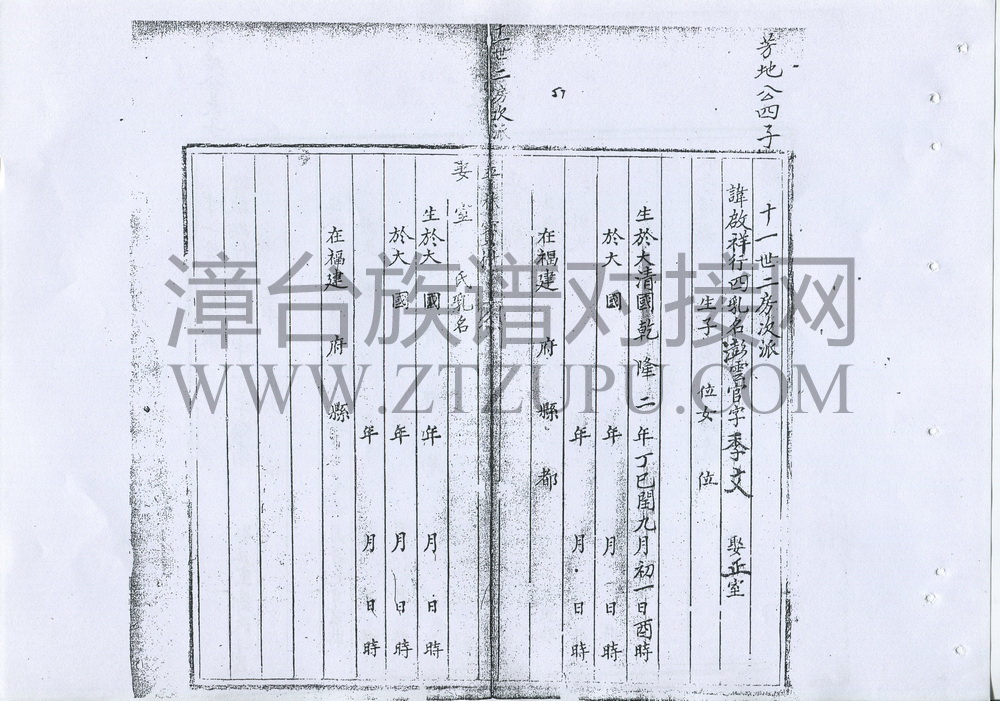 芳地公四子
十一世二房次派
諱啟祥行四乳名澎雲官字季文 娶正室
生子 位女 位
生於大清國乾隆二年丁巳閏九月初一日酉時
於大 國 年 月 日 時
年 月 日 時
在福建 府 縣 都
57
十一世二房次派
娶 室 氏乳名
生於大 國 年 月 日 時
於大 國 年 月 日 時
年 月 日 時
在福建 府 縣
漳台族谱对接网
WWW.ZTZUPU.COM